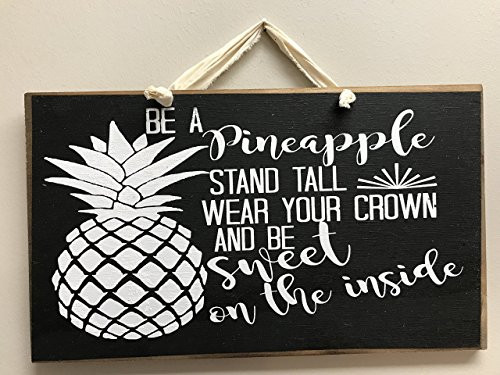 BE A Pineapple
STAND TALL
WEAR YOUR CROWN
AND BE
sweet
on the inside